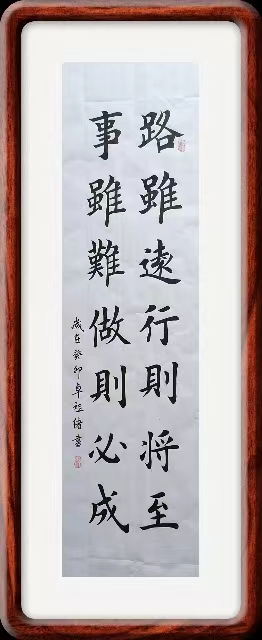 路雖遠行則将至
事雖難做則必成
歲在癸卯卓祖傳書